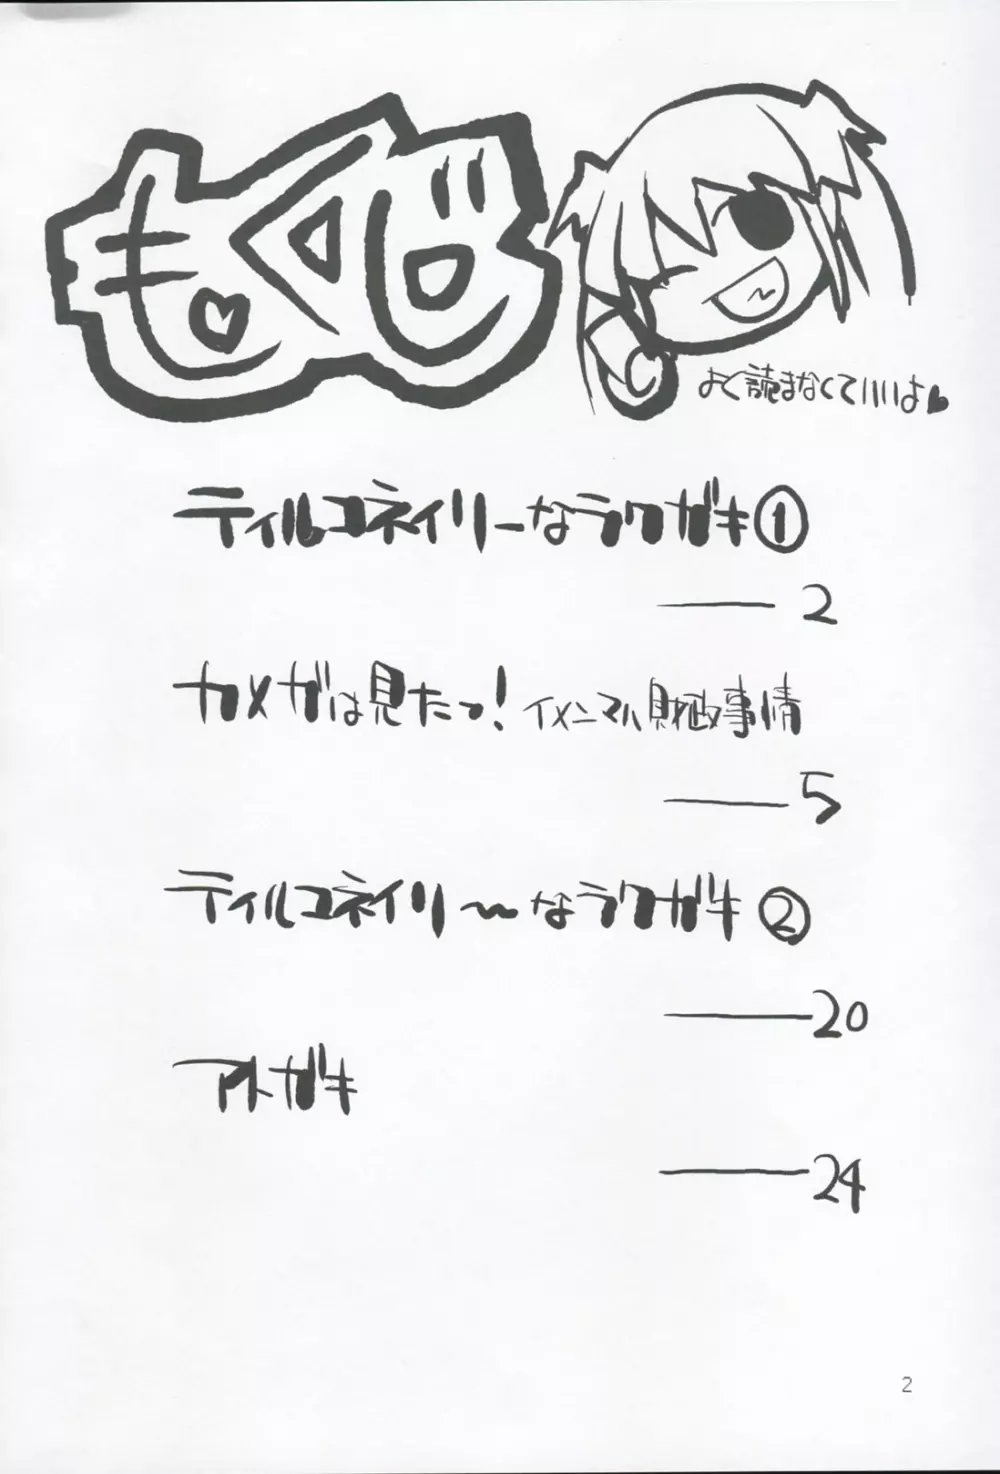 もくじ
よく読まなくていいよ♥
ティルコネイリーなラクガキ①
2
カメガは見たっ!イメンマハ財政事情
5
ティルコネイリ〜なラクガキ②
20
アトガキ
24
2